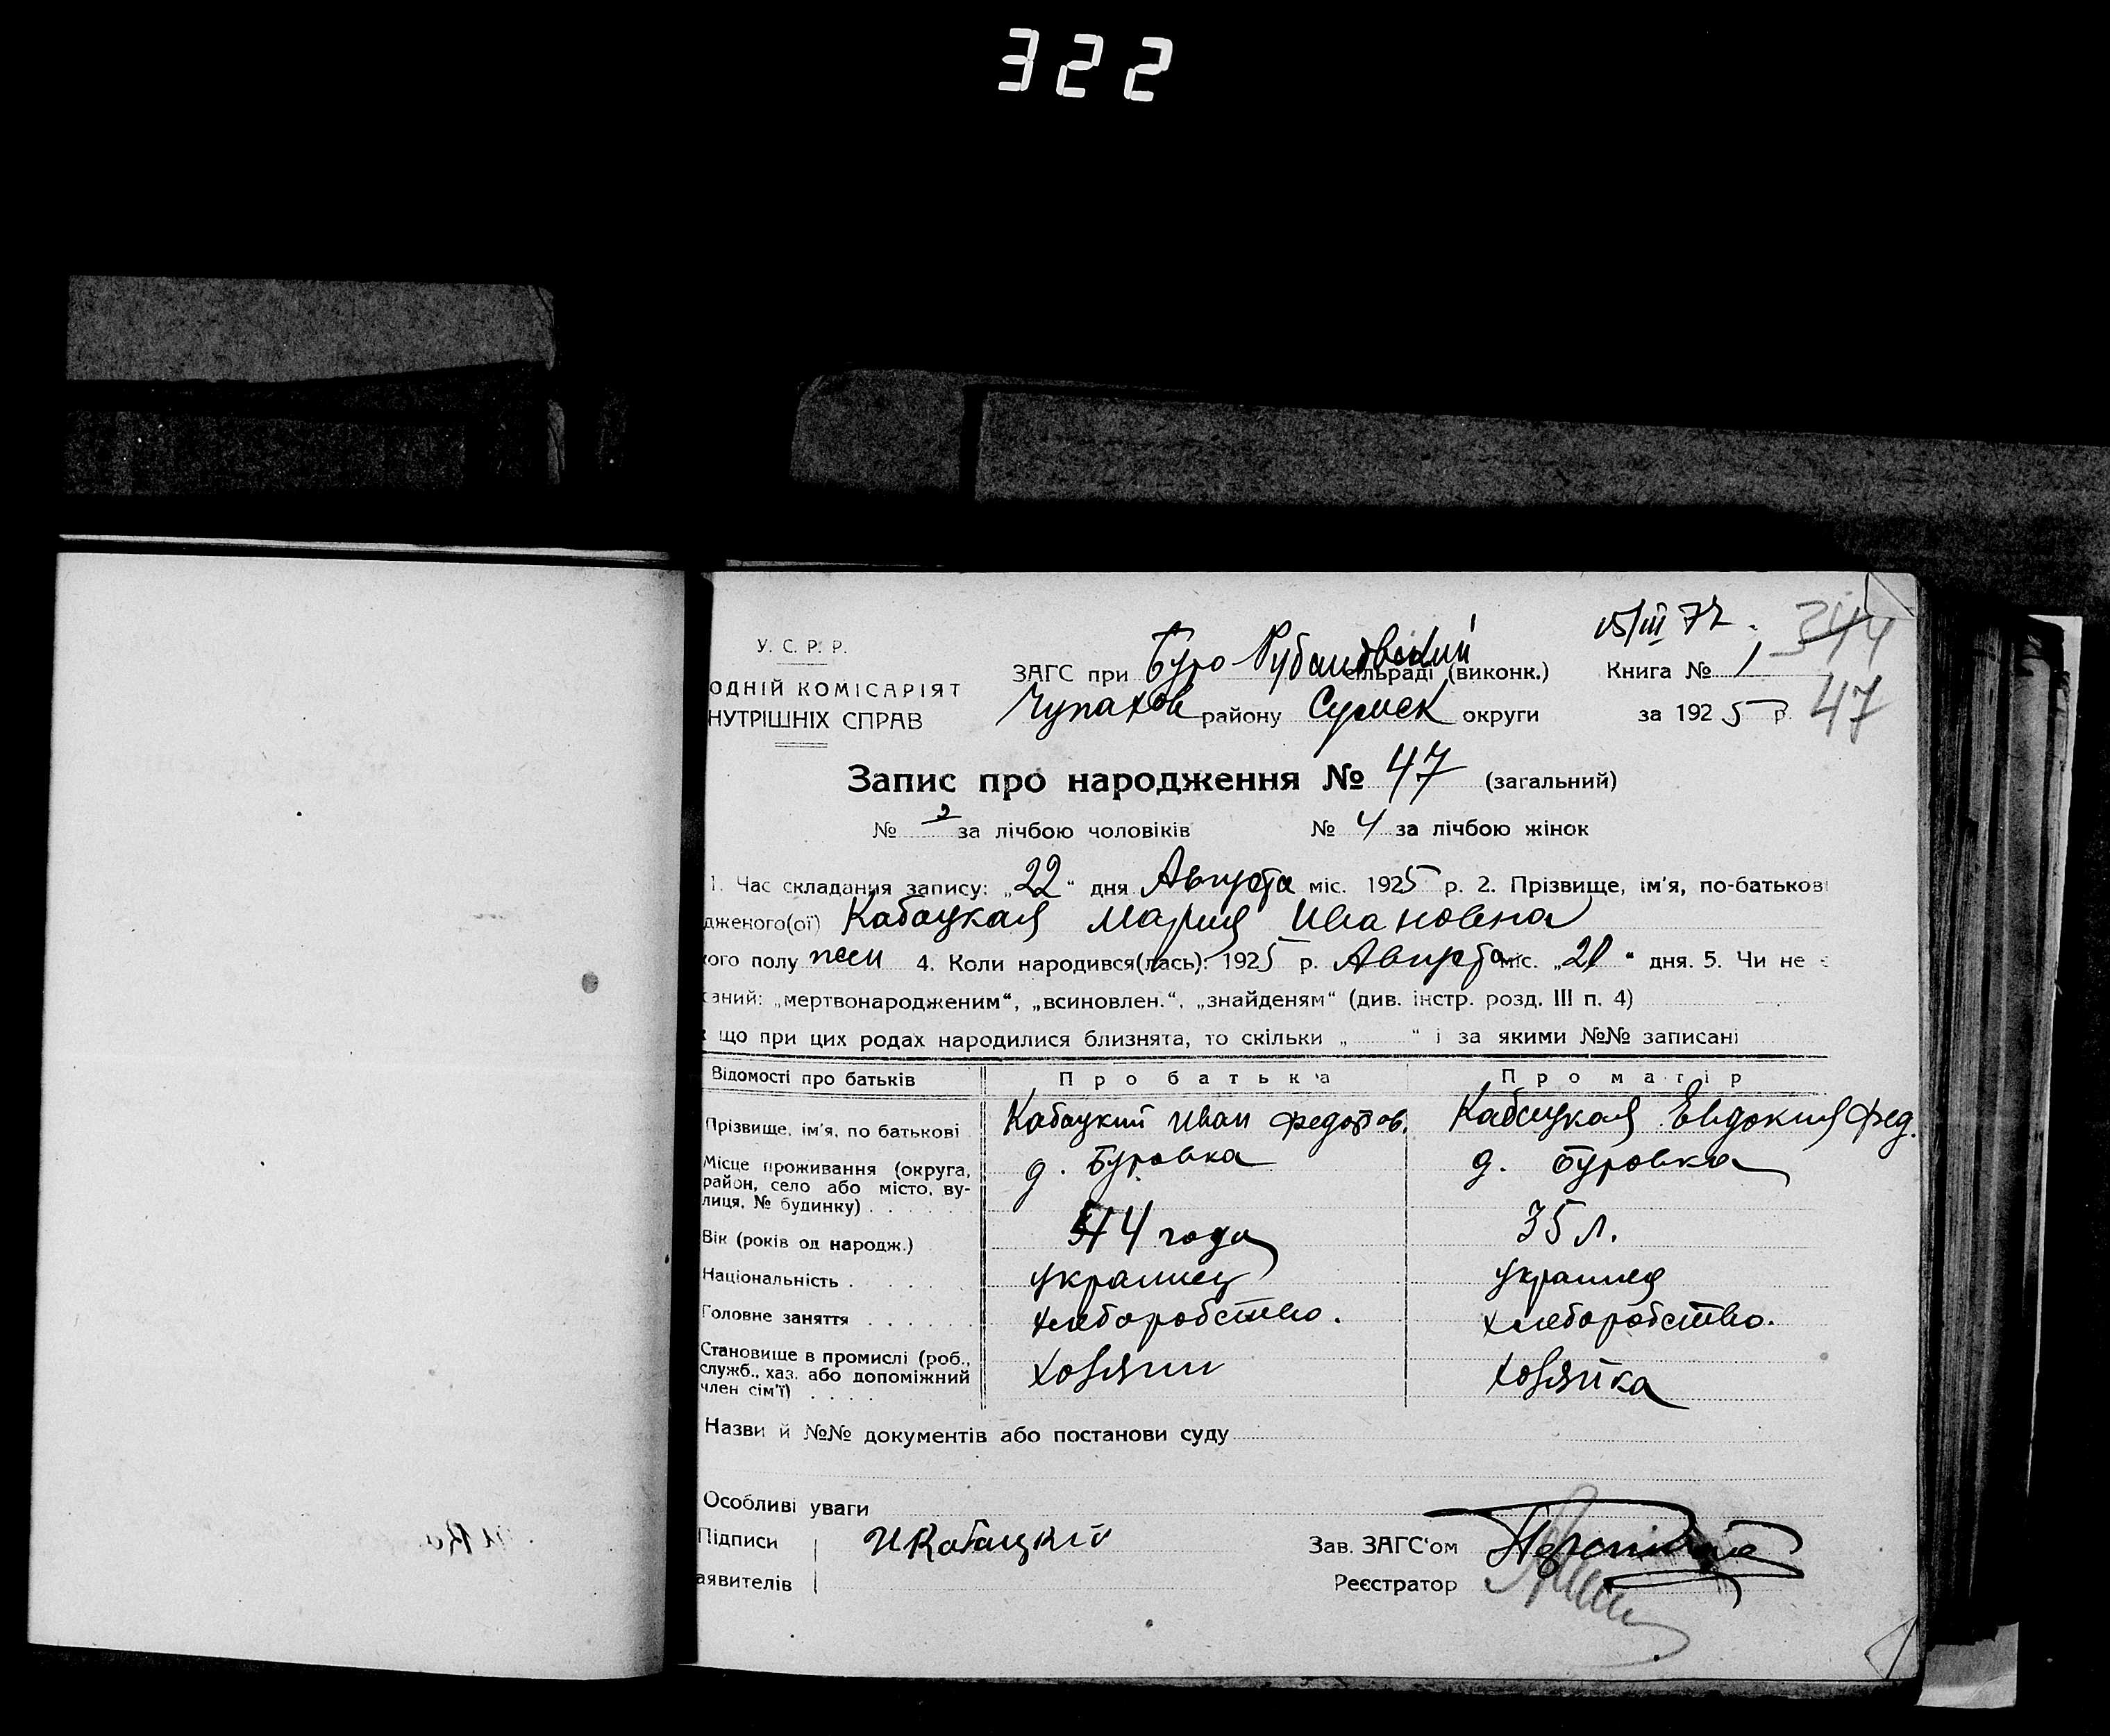 322
15/III 72.
344
У. С. Р. Р.
ЗАГС при Буро Рубановский сільраді (виконк.) Книга № 1
ОДНІЙ КОМІСАРІЯТ
НУТРІШНІХ СПРАВ
Чупахов району Сумск округи за 1925 р. 47
Запис про народження № 47 (загальний)
№ за лічбою чоловіків № 4 за лічбою жінок
1. Час складання запису: „22“ дня Августа міс. 1925 р. 2. Прізвище, ім'я, по-батькові
дженого(ої) Кабацкая Мария Ивановна
кого полу жен 4. Коли народився(лась): 1925 р. Августа міс. „21“ дня. 5. Чи не є
саний: „мертвонародженим“, „всиновлен.“, „знайденям“ (див. інстр. розд. III п. 4)
що при цих родах народилися близнята, то скільки „ “ і за якими №№ записані
Відомості про батьків Про батька Про матір
Прізвище, ім'я, по батькові Кабацкий Иван Федотов. Кабацкая Евдокия Фед.
Місце проживання (округа, район, село або місто, вулиця, № будинку) . . . . . д. Буровка д. Буровка
Вік (років од народж.) 44 года 35 л.
Національність . . . . . украинец украинка
Головне заняття . . . . . . хлеборобство. хлеборобство.
Становище в промислі (роб., служб., хаз. або допоміжний член сім'ї) . . . . хозяин хозяйка
Назви й №№ документів або постанови суду
Особливі уваги
Підписи И Кабацкий Зав. ЗАГС'ом
аявителів Реєстратор